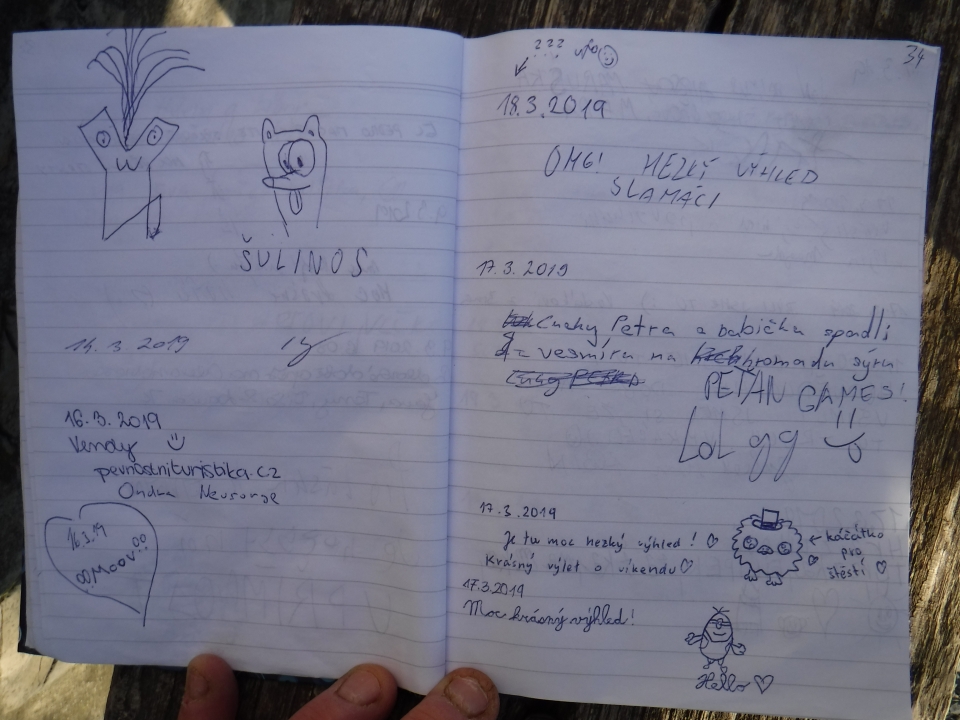 ŠULINOS
14. 3 2019
16.3.2019
Vendy
pevnostnituristika.cz
Ondra
16.3.19
Moov
34
??? ufo
18.3.2019
OMG! HEZKÝ VÝHLED
SLAMÁCI
17.3.2019
Petra a babička spadli
z vesmíru na hromadu sýru
PEŤAN GAMES!
LOL gg
17.3.2019
Je tu moc hezký výhled! ♡
káčátko
pro
štěstí ♡
Krásný výlet o víkendu ♡
17.3.2019
Moc krásný výhled!
Hello ♡